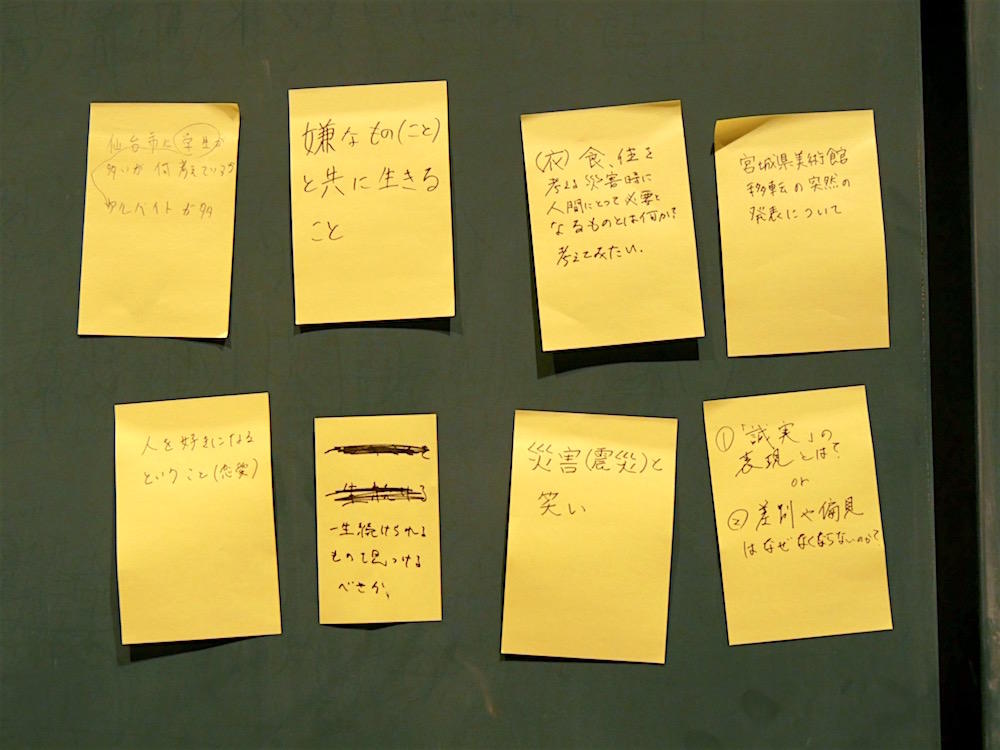 仙台市に学生が
多いが何考えているか
アルバイトが多
嫌なもの(こと)
と共に生きる
こと
(衣)食、住を
考える災害時に
人間にとって必要と
なるものとは何か?
考えてみたい.
宮城県美術館
移転の突然の
発表について
人を好きになる
ということ(恋愛)
一生続けられる
もの見つける
べきか、
災害(震災)と
笑い
① 「誠実」の
表現とは?
or
② 差別や偏見
はなぜなくならないのか?